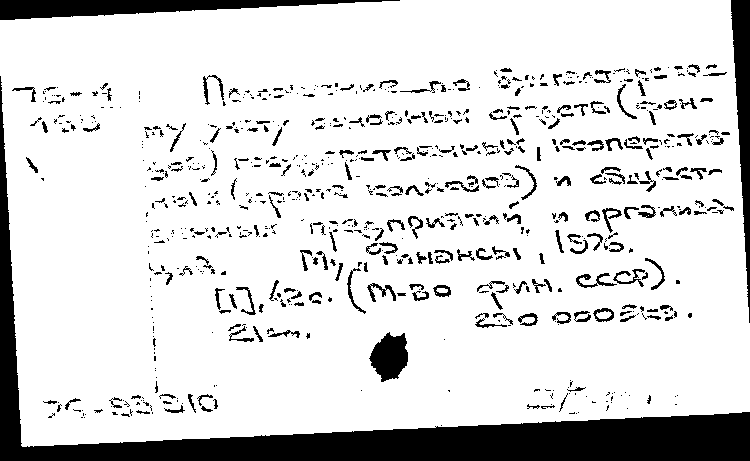 76-4 Положение по бухгалтерско-
му учету основных средств (фон-
дов) государственных, кооператив-
ных (кроме колхозов) и общест-
венных предприятий и организа-
ций. М., „Финансы", 1976.
[1], 42 с. (М-во фин. СССР).
21 см. 230 000 экз.